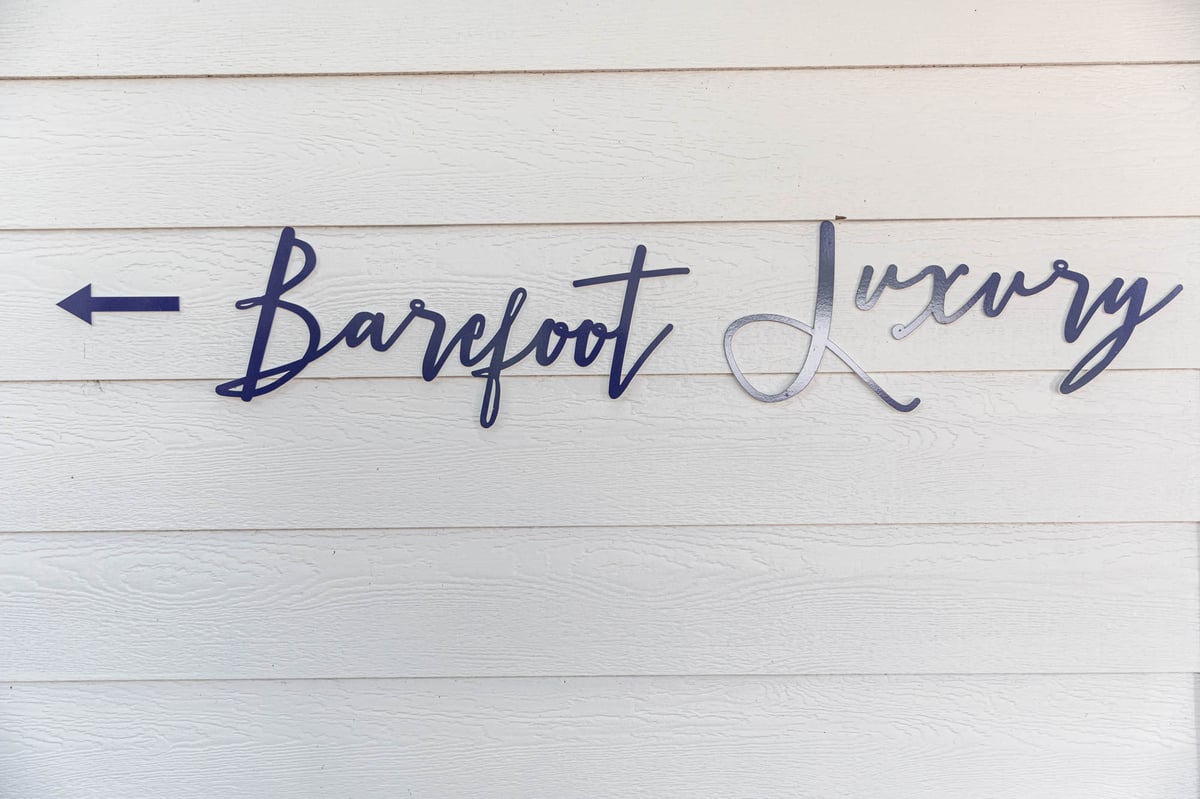 ← Barefoot Luxury